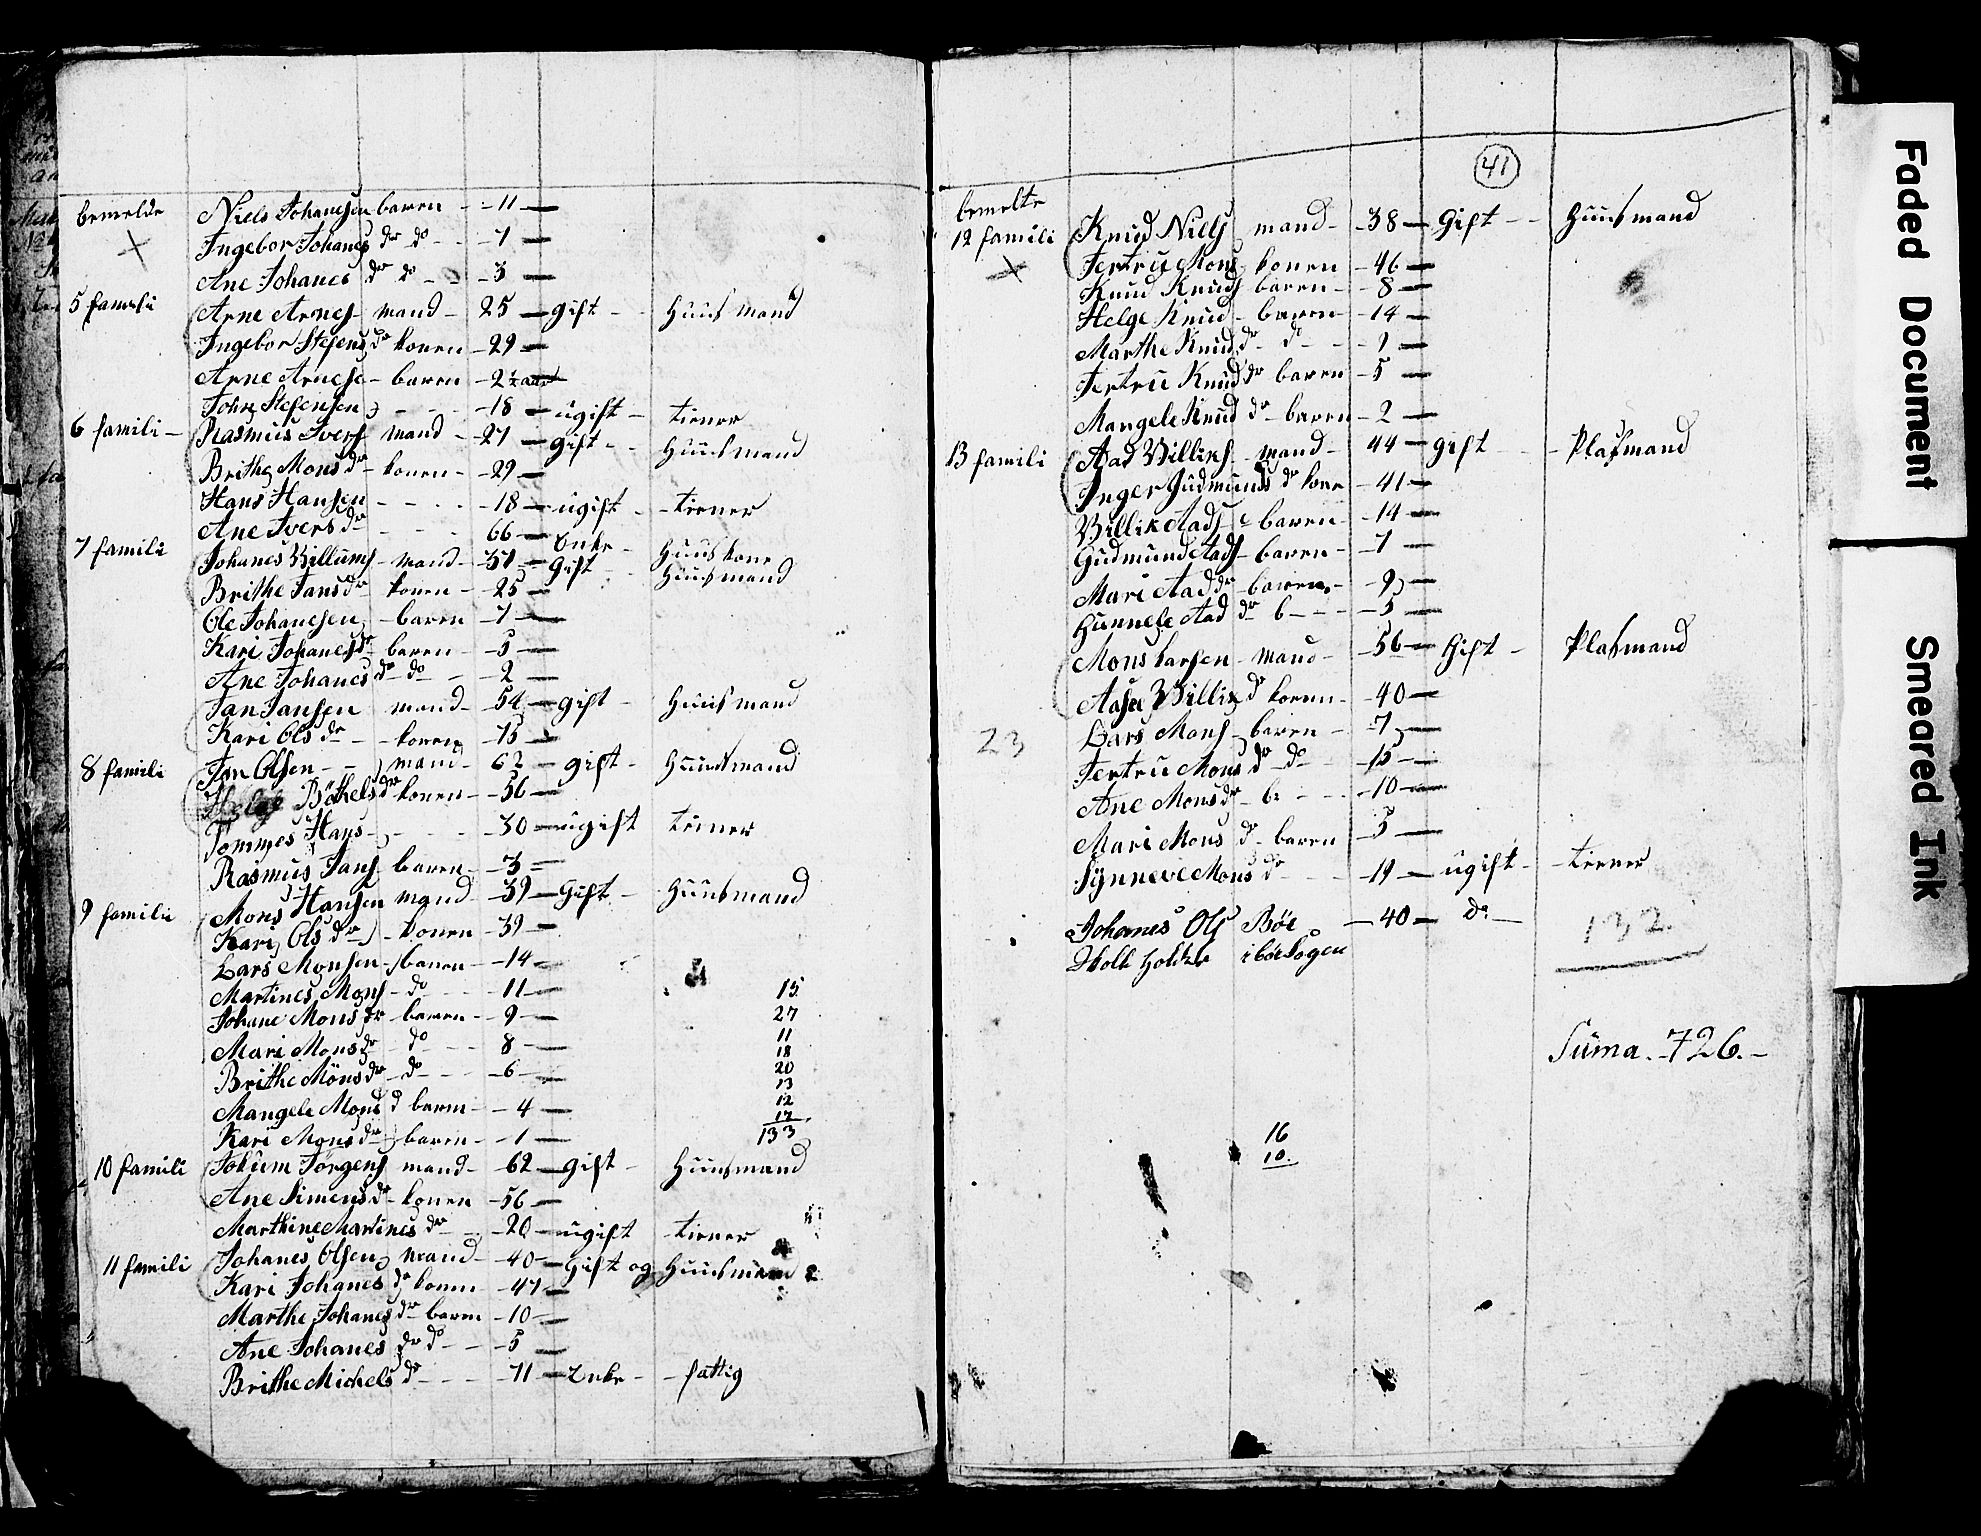 bemelde Niels Johanesen baren - 11 —
Ingebor Johanes dr do - 7 —
Ane Johanes dr do - 3 —
5 famili Arne Arnes mand - 25 - gift - Huusmand
Ingebor Stefens dr konen - 29 —
Arne Arnese - baren - 2½ aar
John Stefensen - 18 - ugift - tiener
6 famili - Rasmus Ivers mand - 27 - gift - Huusmand
Brithe Mons dr - konen - 29 —
Hans Hansen - 18 - ugift - tiener
Ane Ivers dr - 66 - Enke - Huuskone
7 famili Johanes Billums - mand - 37 - gift - Huusmand
Brithe Jans dr - konen - 25 —
Ole Johanesen - baren - 7 —
Kari Johanes dr - baren - 5 —
Ane Johanes dr - do - 2 —
Jan Jansen mand - 54 - gift - Huusmand
Kari Ols dr - konen - 75
8 famili Jan Olsen - mand - 62 - gift - Huusmand
Helge Böthels dr konen - 56 —
Tommes Hans - 30 - ugift tiener
Rasmus Jans - baren - 3 =
9 famili Mons Hansen mand - 39 - Gift - Huusmand
Kari Ols dr - konen - 39 —
Lars Monsen - baren - 14 —
Martines Mons - do - 11 — 15
Johane Mons dr - baren - 9 — 27
Mari Mons dr - do - 8 — 11
18
Brithe Mons dr - do - 6 — 20
13
Mangele Mons d baren - 4 — 12
17
Kari Mons dr baren - 1 — 133
10 famili Jokum Jörgens mand - 62 - gift - Huusmand
Ane Simens dr - konen - 56 —
Marthine Martines dr - 20 - ugift - tiener
11 famili Johanes Olsen mand - 40 - Gift og Huusmand
Kari Johanes dr konen - 47 —
Marthe Johanes dr - baren - 10 —
Ane Johanes dr do - 5 —
Brithe Michels dr - 71 - Enke - fattig
41
bemelte
12 famili Knud Nills mand - 38 - Gift - Huusmand
Jertru Mons konen - 46 —
Knud Knuds baren - 8 —
Helge Knud - baren - 14 —
Marthe Knud dr - do - 9 —
Jertru Knud dr baren - 5 —
Mangele Knud dr - baren - 2 —
13 famili Aad Billiks - mand - 44 - gift - Plasmand
Inger Gudmunds dr kone - 41 —
Billik Aads - baren - 14 —
Gudmund Aads - baren - 7 —
Mari Aad dr - baren - 9 —
Hunnele Aad dr b - 5 —
Mons Larsen - mand - 56 - Gift - Plasmand
Aasa Billiks dr konen - 40 —
23 Lars Mons - baren - 7 —
Jertru Mons dr - do - 15 —
Ane Mons dr - b - 10 —
Mari Mons dr - baren 5 —
Synneve Mons dr - 19 - ugift - tiener
Johanes Ols Böe - 40 - do - 132
i böe Sogen
Suma - 726. -
16
10
Faded Document
Smeared Ink